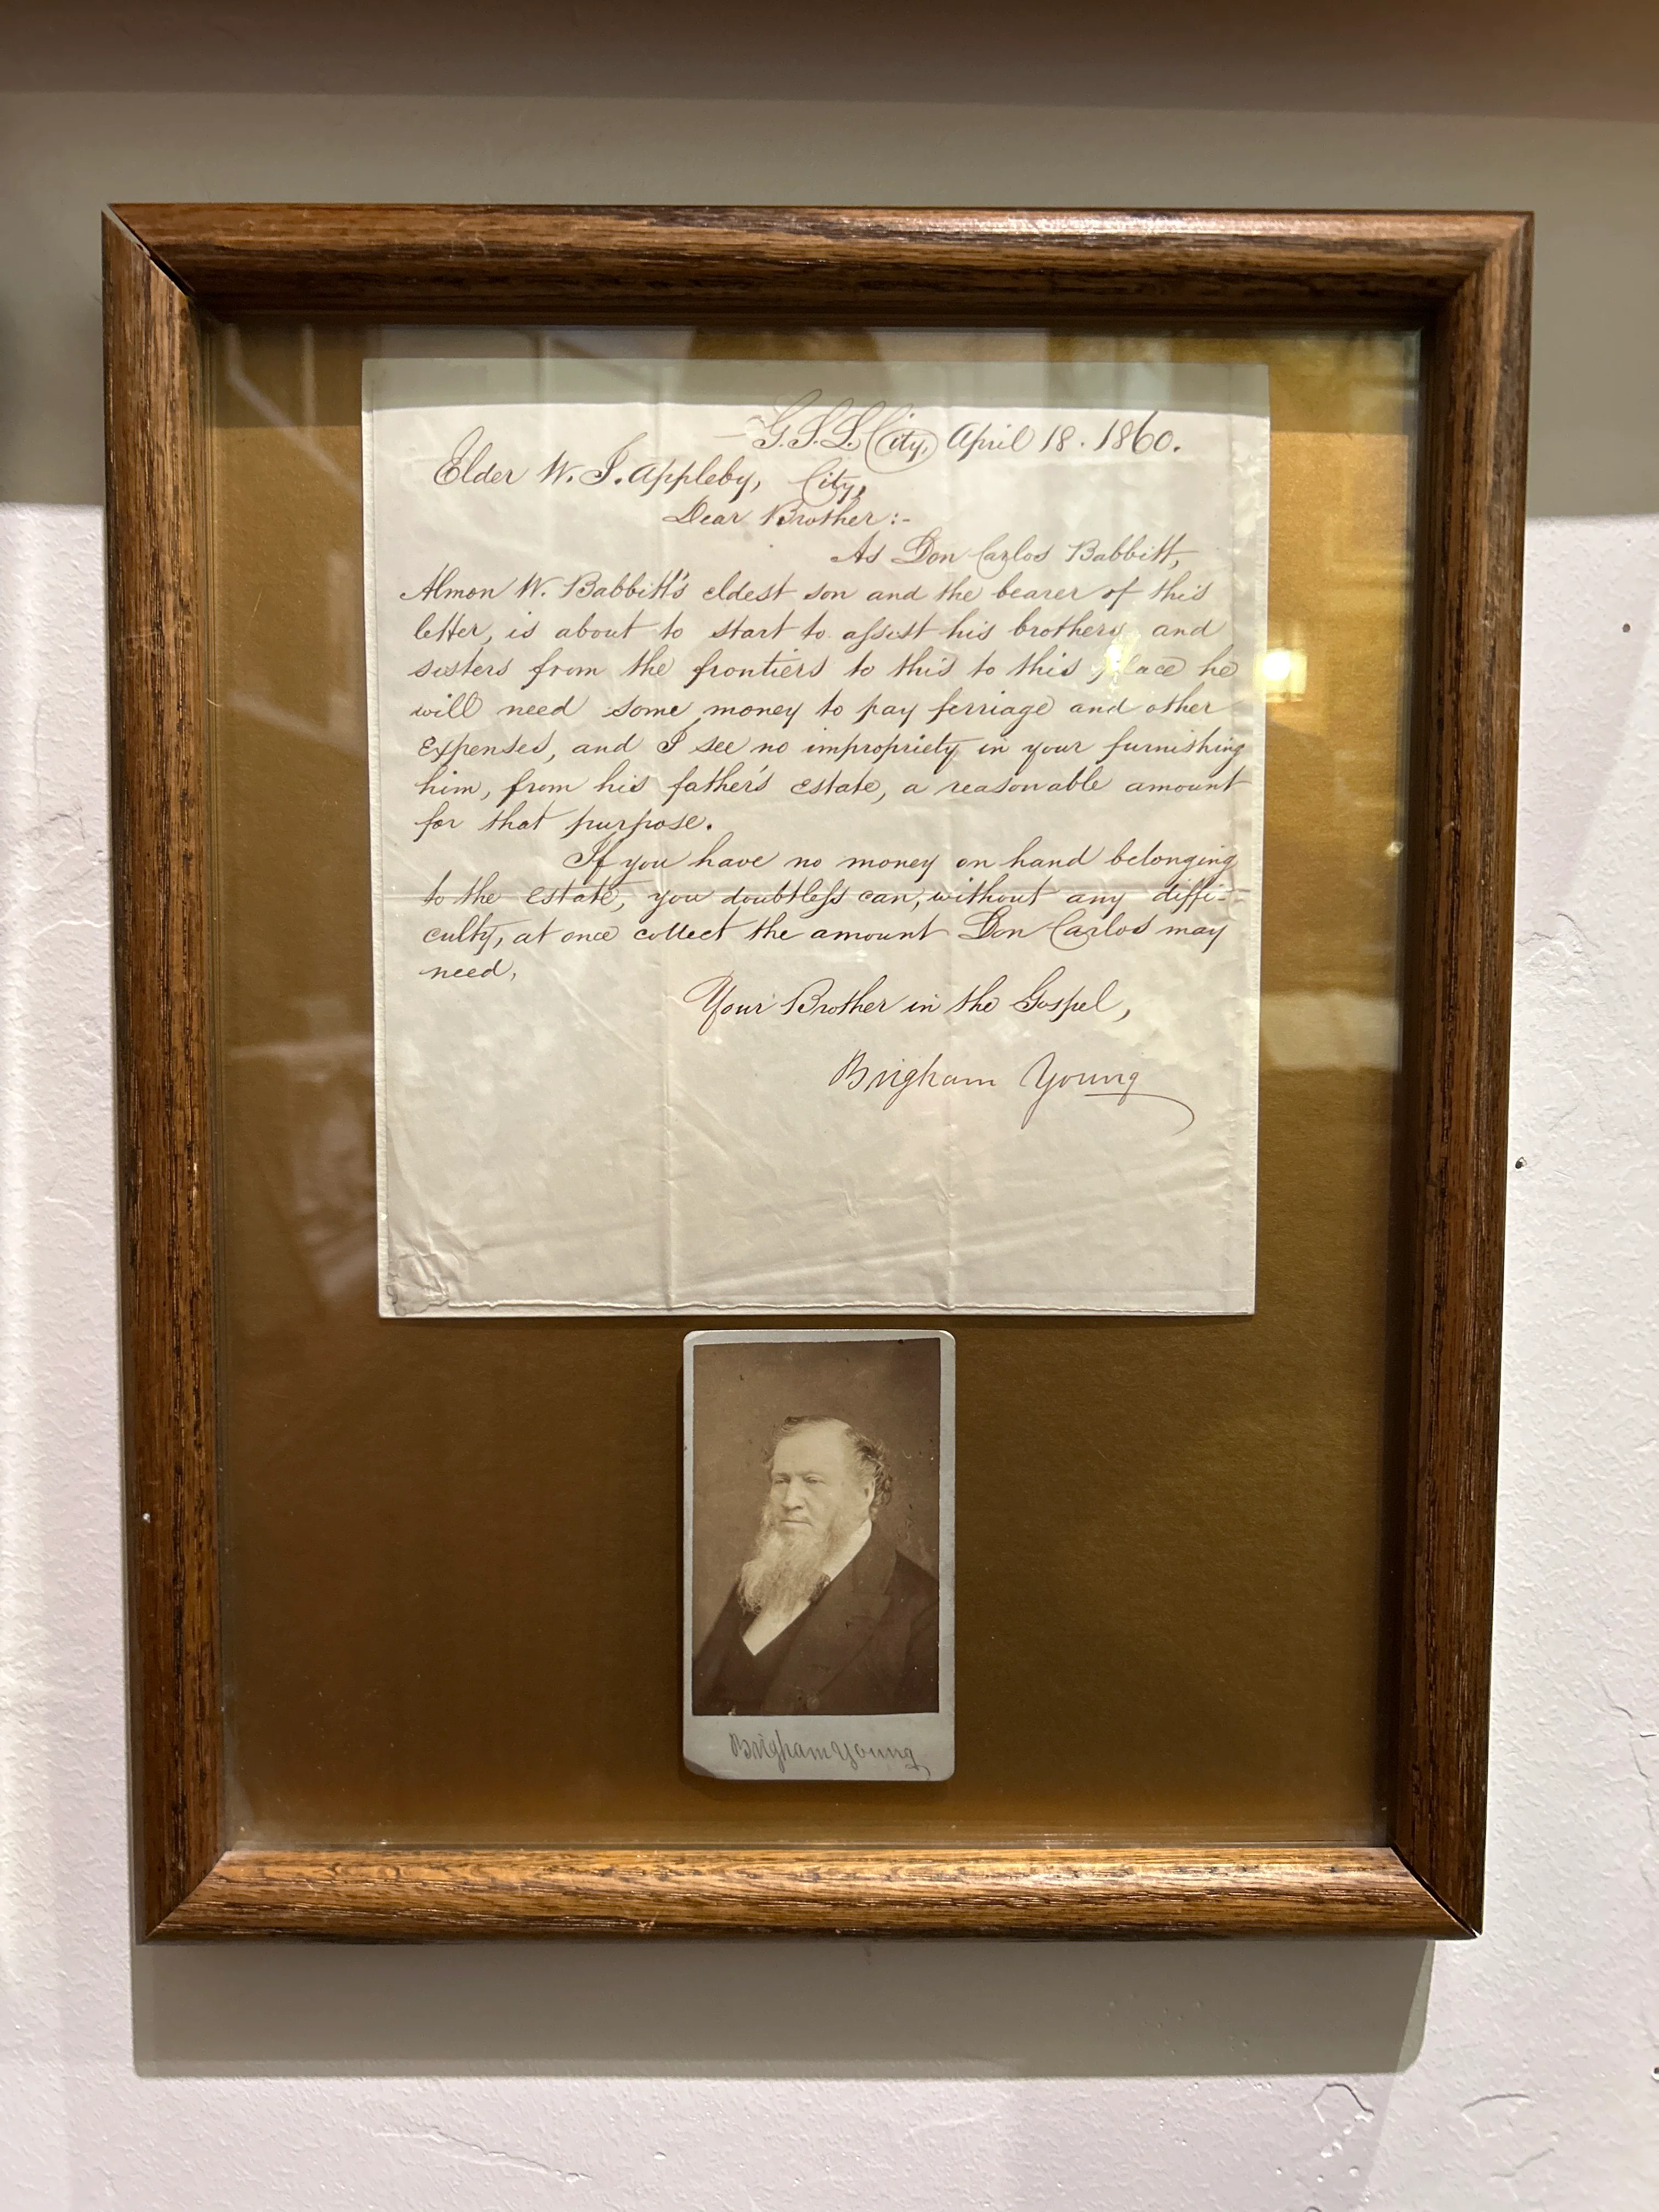 G.S.L. City, April 18. 1860.
Elder W. I. Appleby, City,
Dear Brother:-
As Don Carlos Babbitt,
Almon W. Babbitt's eldest son and the bearer of this
letter, is about to start to assist his brothers and
sisters from the frontiers to this to this place he
will need some money to pay ferriage and other
expenses, and I see no impropriety in your furnishing
him, from his father's estate, a reasonable amount
for that purpose.
If you have no money on hand belonging
to the estate, you doubtless can, without any diffi-
culty, at once collect the amount Don Carlos may
need.
Your Brother in the Gospel,
Brigham Young
Brigham Young